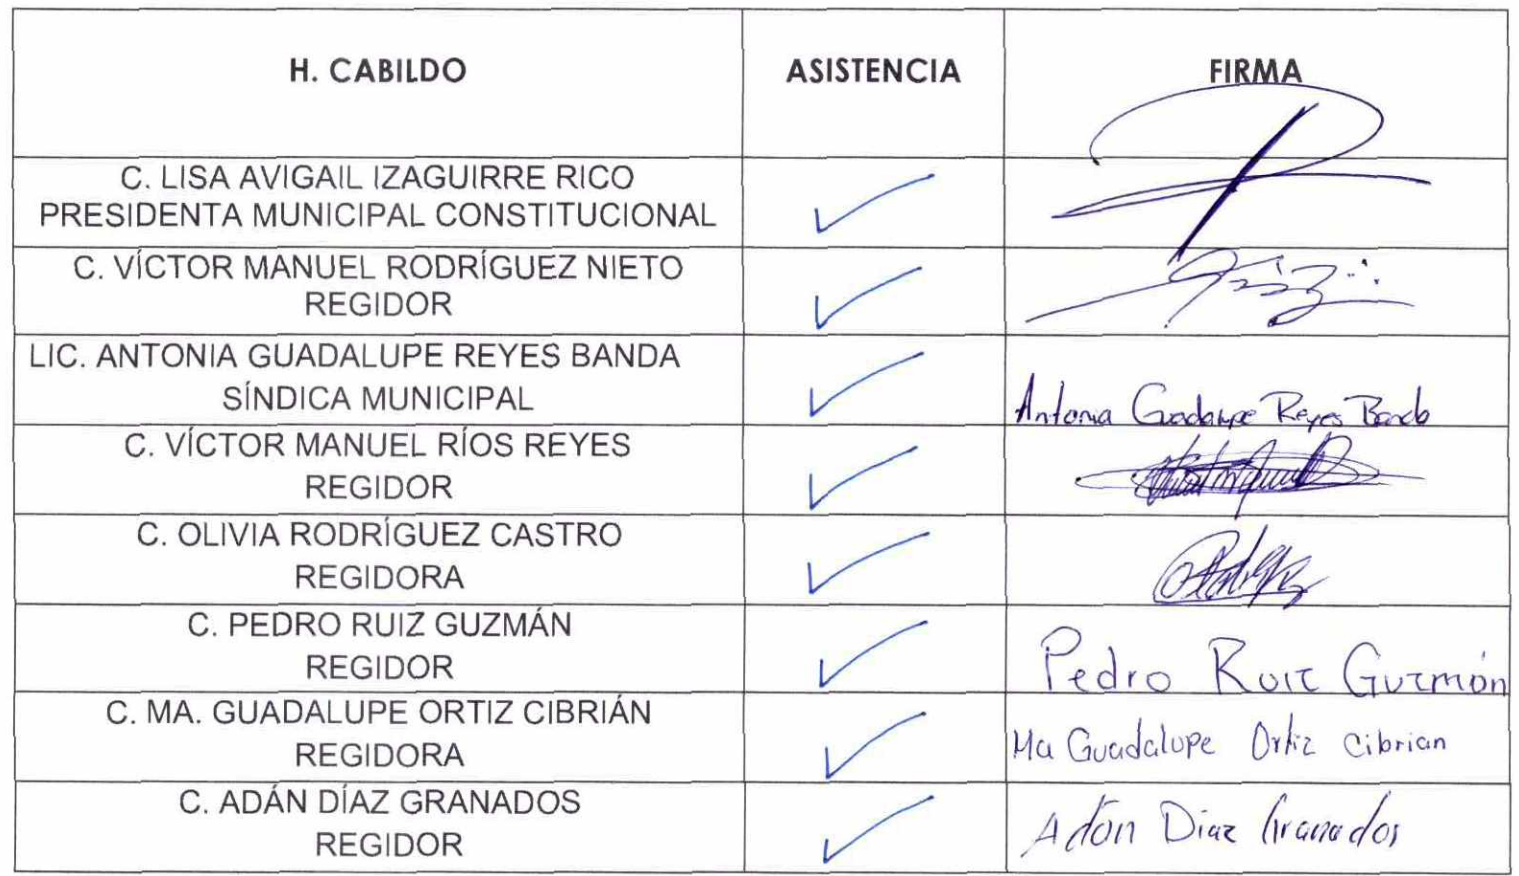 H. CABILDO ASISTENCIA FIRMA
C. LISA AVIGAIL IZAGUIRRE RICO
PRESIDENTA MUNICIPAL CONSTITUCIONAL
C. VÍCTOR MANUEL RODRÍGUEZ NIETO
REGIDOR
LIC. ANTONIA GUADALUPE REYES BANDA
SÍNDICA MUNICIPAL
Antonia Guadalupe Reyes Banda
C. VÍCTOR MANUEL RÍOS REYES
REGIDOR
C. OLIVIA RODRÍGUEZ CASTRO
REGIDORA
C. PEDRO RUIZ GUZMÁN
REGIDOR
Pedro Ruiz Guzmán
C. MA. GUADALUPE ORTIZ CIBRIÁN
REGIDORA
Ma Guadalupe Ortiz Cibrian
C. ADÁN DÍAZ GRANADOS
REGIDOR
Adán Diaz Granados